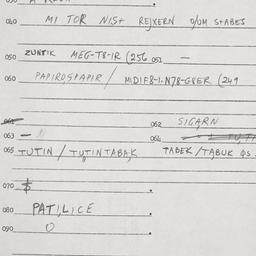 040 MI TOR NIST REJXERN O/UM STABES
050 ZUNTIK MEG-T8-IR (256 051 —
060 PAPIROSTAPIR / MIDIF8-I-N78-G8ER (249
062 SIGARN
063 — 064
065 TUTIN / TUTINTABAK TABEK / TABUK QS
070 $
080 PATILICE
090 O